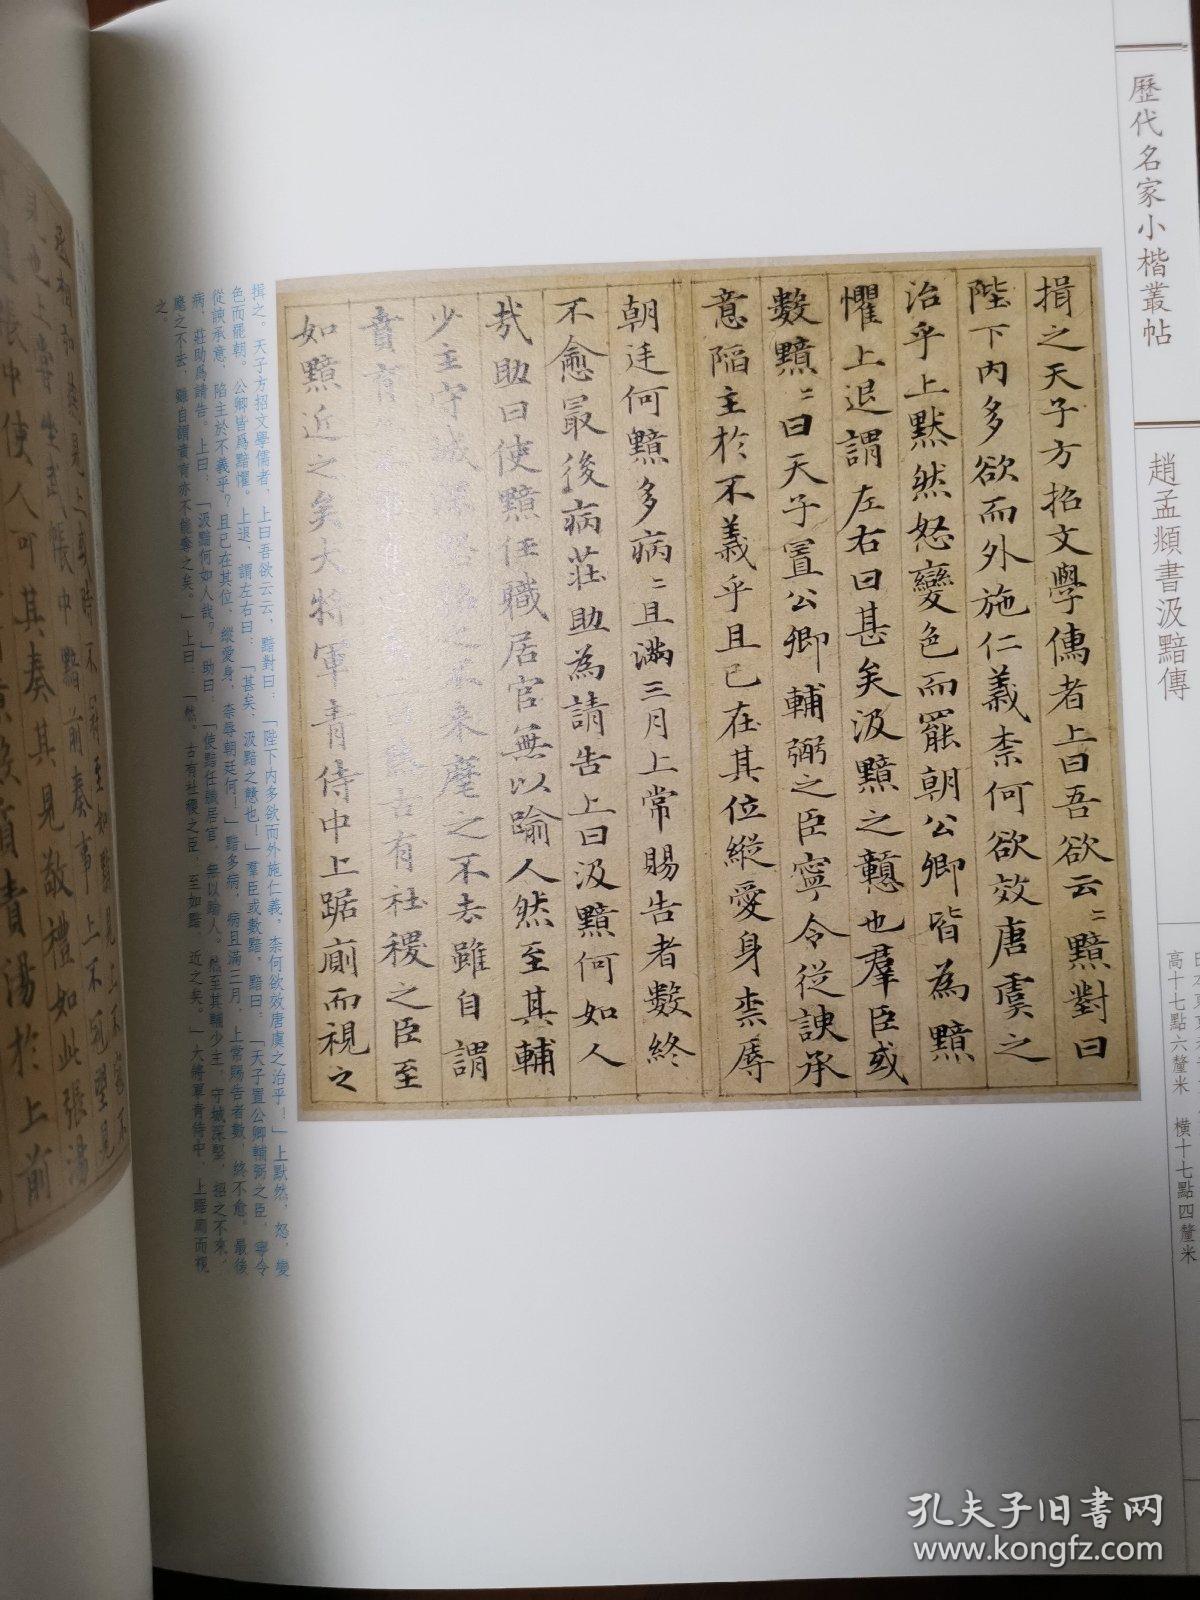 歷代名家小楷叢帖
趙孟頫書汲黯傳
高十七點六釐米 橫十七點四釐米
揖之天子方招文學儒者上曰吾欲云〻黯對曰
陛下內多欲而外施仁義柰何欲效唐虞之
治乎上黙然怒變色而罷朝公卿皆為黯
懼上退謂左右曰甚矣汲黯之戇也羣臣或
數黯〻曰天子置公卿輔弼之臣寧令從諛承
意陷主於不義乎且已在其位縱愛身柰辱
朝廷何黯多病〻且滿三月上常賜告者數終
不愈最後病莊助為請告上曰汲黯何如人
哉助曰使黯任職居官無以踰人然至其輔
少主守城深堅招之不来麾之不去雖自謂
賁育古有社稷之臣至
如黯近之矣大將軍青侍中上踞廁而視之
揖之。天子方招文學儒者，上曰吾欲云云，黯對曰：「陛下內多欲而外施仁義，柰何欲效唐虞之治乎！」上默然，怒，變
色而罷朝。公卿皆爲黯懼。上退，謂左右曰：「甚矣，汲黯之戇也！」羣臣或數黯，黯曰：「天子置公卿輔弼之臣，寧令
從諛承意，陷主於不義乎？且已在其位，縱愛身，柰辱朝廷何！」黯多病，病且滿三月，上常賜告者數，終不愈。最後
病，莊助爲請告。上曰：「汲黯何如人哉？」助曰：「使黯任職居官，無以踰人。然至其輔少主，守城深堅，招之不來，
麾之不去，雖自謂賁育亦不能奪之矣。」上曰：「然。古有社稷之臣，至如黯，近之矣。」大將軍青侍中，上踞廁而視
之。
孔夫子旧书网
www.kongfz.com